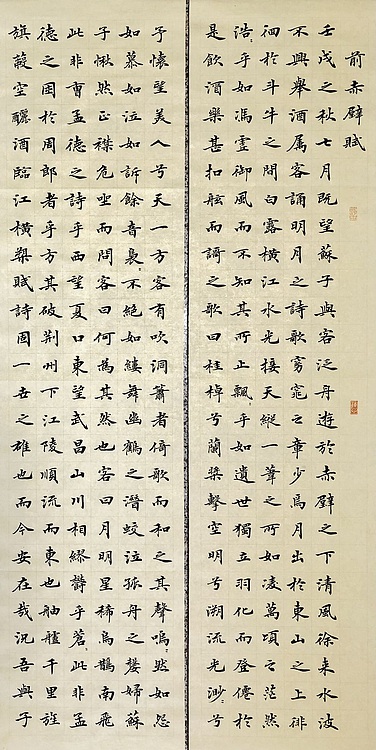 前赤壁賦
壬戌之秋七月既望蘇子與客泛舟遊於赤壁之下清風徐來水波
不興舉酒属客誦明月之詩歌窈窕之章少焉月出於東山之上徘
徊於斗牛之間白露橫江水光接天縱一葦之所如凌萬頃之茫然
浩乎如馮虛御風而不知其所止飄乎如遺世獨立羽化而登僊於
是飲酒樂甚扣舷而謌之歌曰桂棹兮蘭槳擊空明兮溯流光渺兮
予懷望美人兮天一方客有吹洞簫者倚歌而和之其聲嗚然如怨
如慕如泣如訴餘音裊不絕如縷舞幽壑之潛蛟泣孤舟之嫠婦蘇
子愀然正襟危坐而問客曰何為其然也客曰月明星稀烏鵲南飛
此非曹孟德之詩乎西望夏口東望武昌山川相繆鬱乎蒼此非孟
德之困於周郎者乎方其破荊州下江陵順流而東也舳艫千里旌
旗蔽空釃酒臨江橫槊賦詩固一世之雄也而今安在哉況吾與子